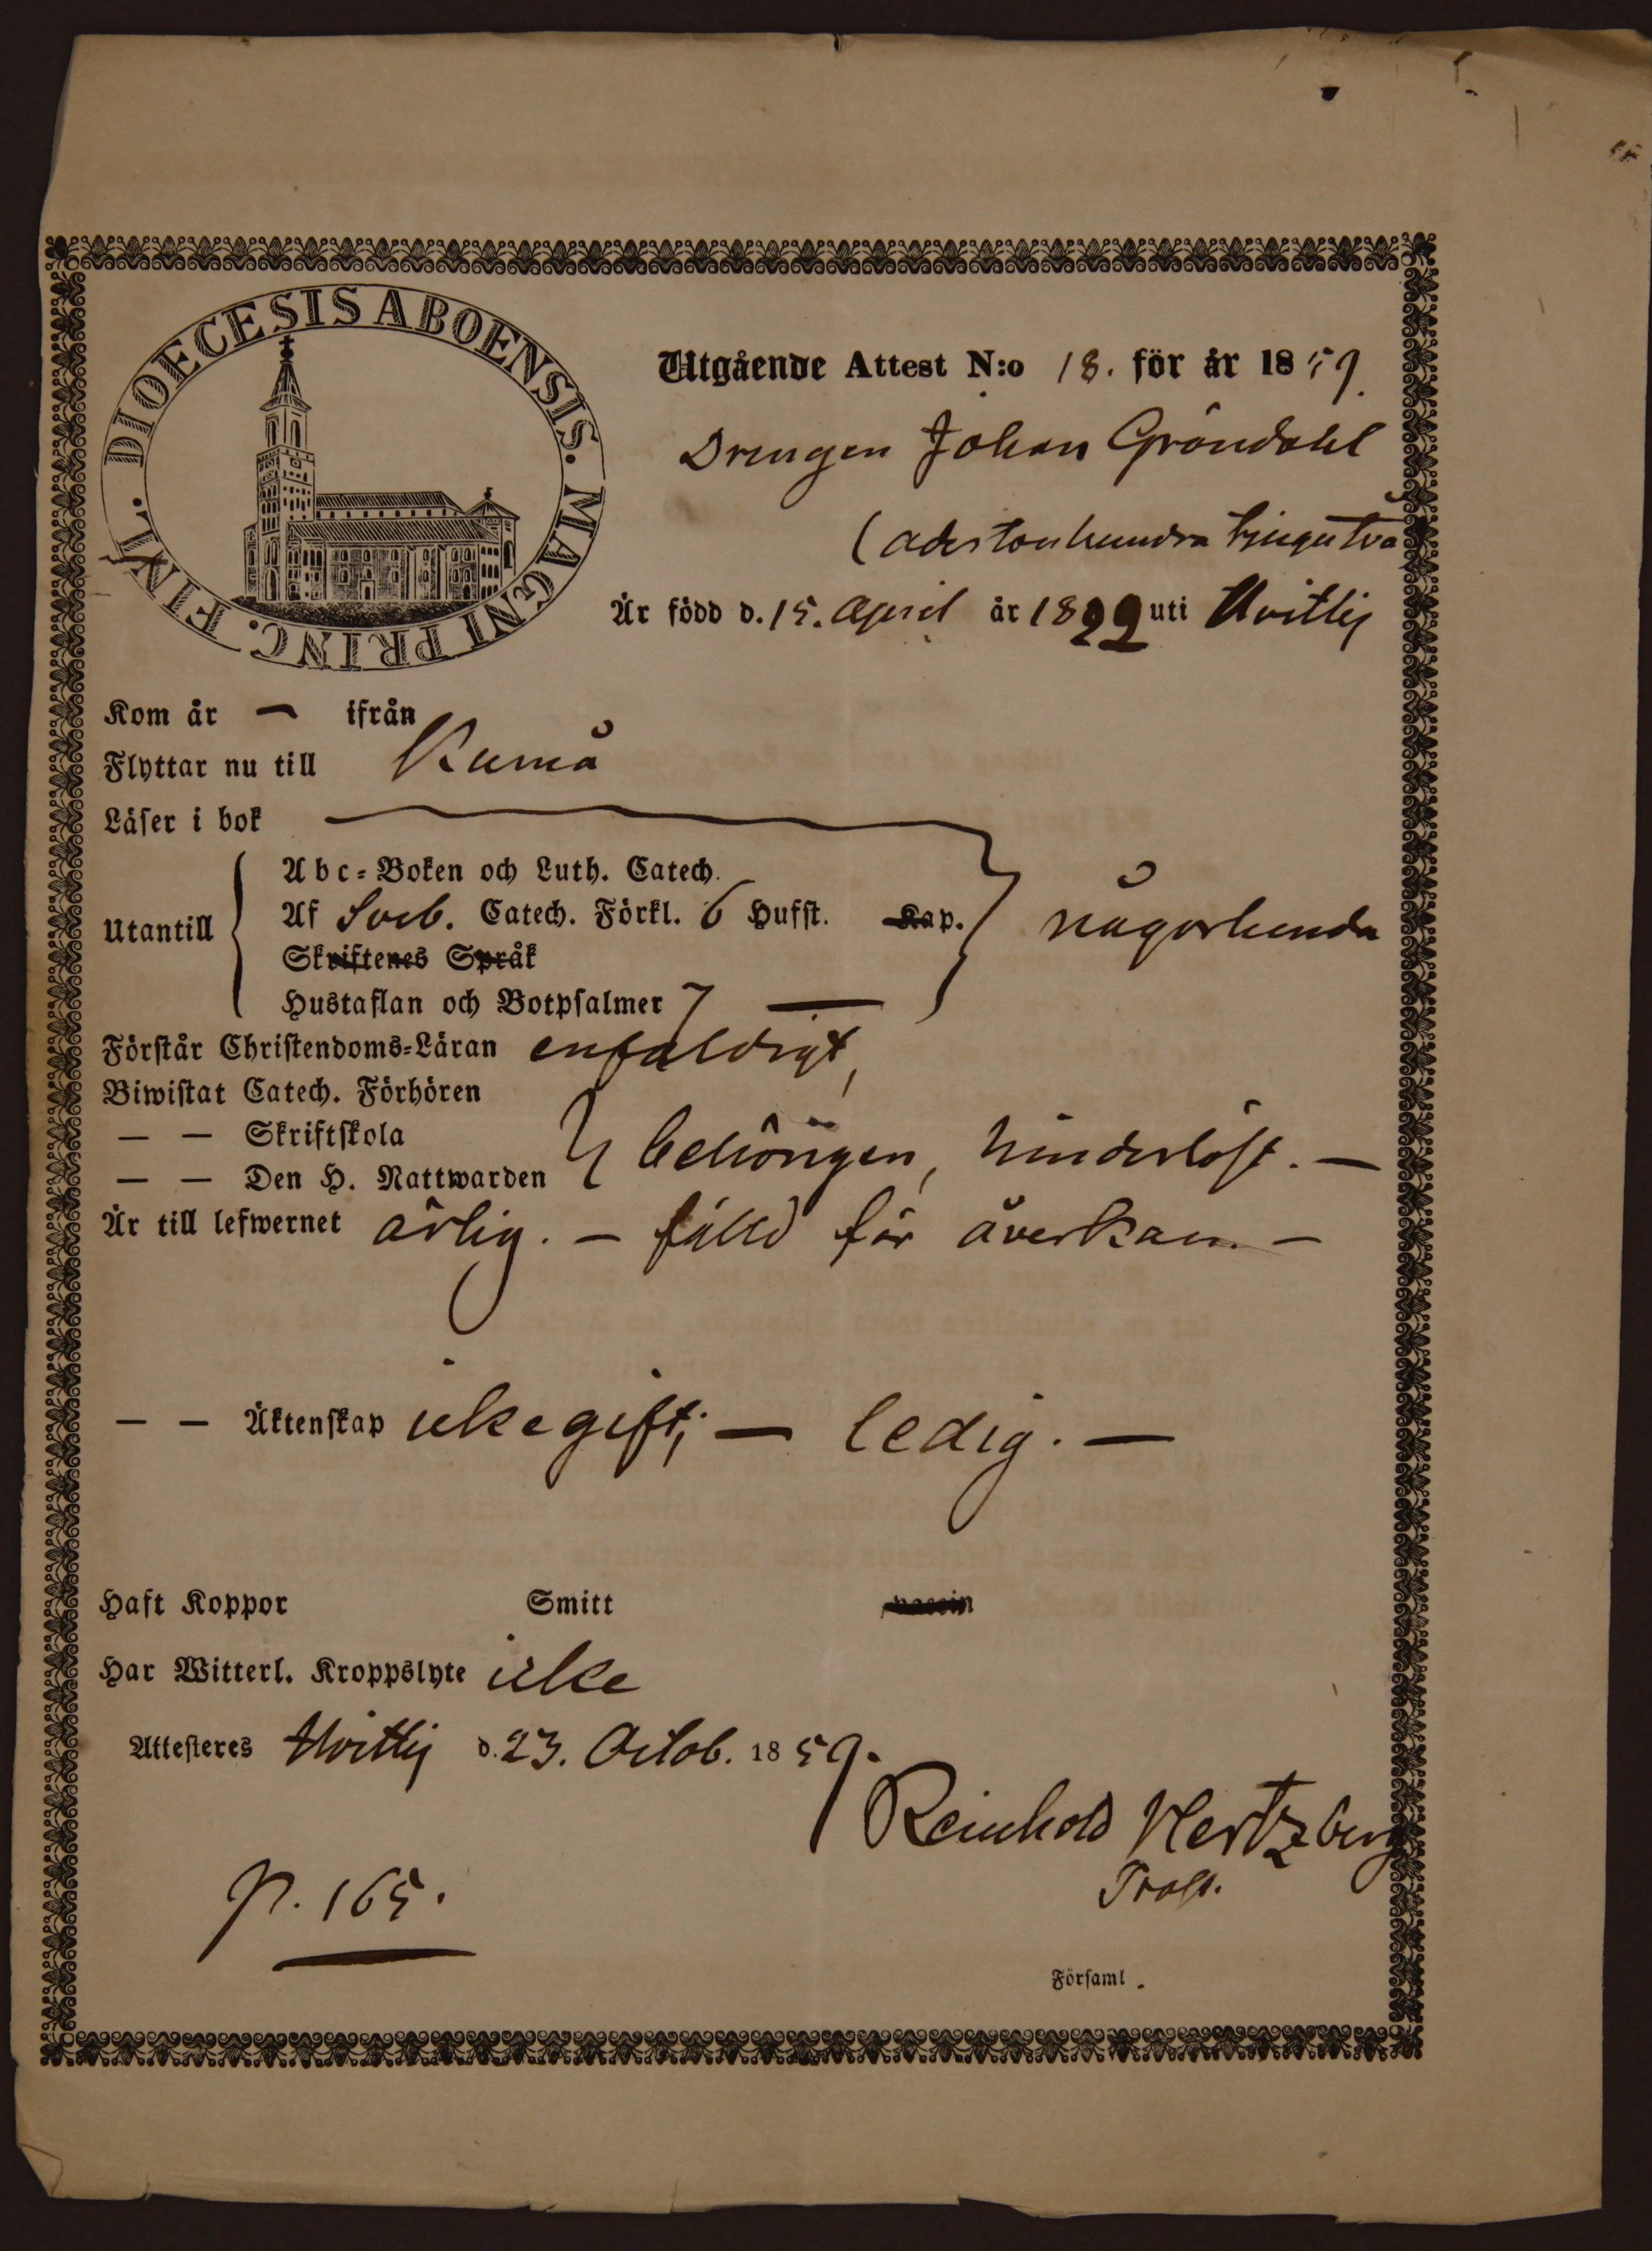 DIOECESIS ABOENSIS. MAGNI PRINC. FINL.
Utgående Attest N:o 18. för år 1859.
Drengen Johan Gröndahl
(adertonhundra tjugutvå)
Är född d. 15. April år 1822 uti Hvittis
Kom år — ifrån
Flyttar nu till Kumå
Läser i bok
Utantill
Abc-Boken och Luth. Catech.
Af Sveb. Catech. Förkl. 6 Hufst. Kap.
någorlunda
Skriftenes Språk
Hustaflan och Botpsalmer 7 —
Förstår Christendoms-Läran enfaldigt,
Biwistat Catech. Förhören
— — Skriftskola
behörigen, hinderlöst. —
— — Den H. Nattwarden
Är till lefwernet ärlig. — fälld för åverkan. —
— — Äktenskap icke gift; — ledig. —
Haft Koppor Smitt vaccin
Har Witterl. Kroppslyte icke
Attesteres Hvittis d. 23. Octob. 1859.
Reinhold Hertzberg
Prost.
p. 165.
Församl.